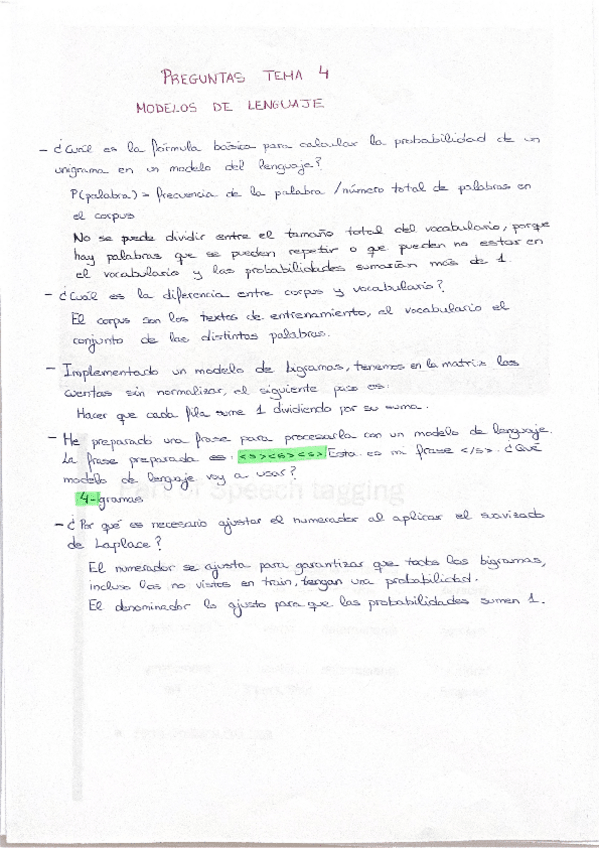 PREGUNTAS TEMA 4
MODELOS DE LENGUAJE
- ¿Cuál es la fórmula básica para calcular la probabilidad de un
unigrama en un modelo del lenguaje?
P(palabra) = frecuencia de la palabra / número total de palabras en
el corpus
No se puede dividir entre el tamaño total del vocabulario, porque
hay palabras que se pueden repetir o que pueden no estar en
el vocabulario y las probabilidades sumarían más de 1.
- ¿Cuál es la diferencia entre corpus y vocabulario?
El corpus son los textos de entrenamiento, el vocabulario el
conjunto de las distintas palabras.
- Implementado un modelo de bigramas, tenemos en la matrix las
cuentas sin normalizar, el siguiente paso es:
Hacer que cada fila sume 1 dividiendo por su suma.
- He preparado una frase para procesarla con un modelo de lenguaje.
La frase preparada es: <s><s><s> Esta es mi frase </s>. ¿Qué
modelo de lenguaje voy a usar?
4-gramas
- ¿Por qué es necesario ajustar el numerador al aplicar el suavizado
de Laplace?
El numerador se ajusta para garantizar que todos los bigramas,
incluso los no vistos en train, tengan una probabilidad.
El denominador lo ajusto para que las probabilidades sumen 1.
Part of Speech tagging